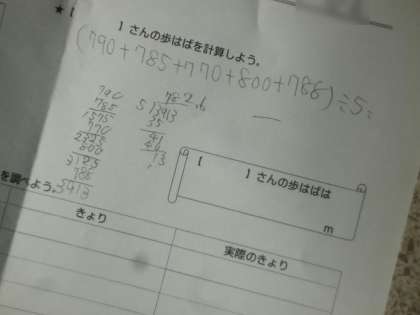 ★
】さんの歩はばを計算しよう。
(790+785+770+800+788)÷5=
790
785
1575
770
800
785
3913
782.6
5 3913
35
41
40
13
【 】さんの歩はばは
m
を調べよう。
きょり
実際のきょり